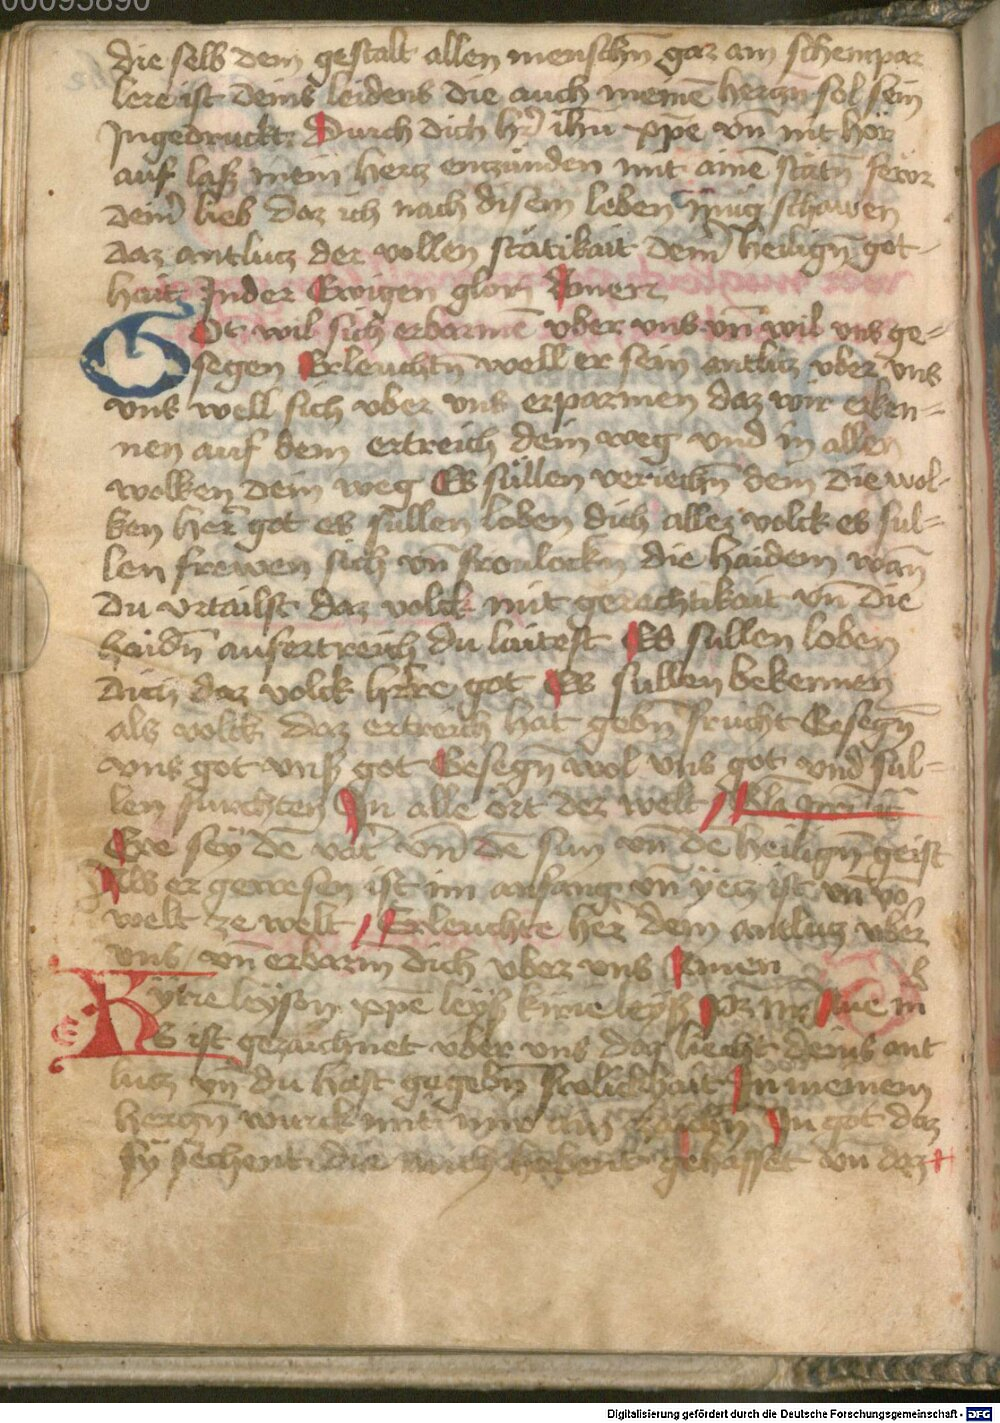 00095890
die selb dein gestalt allen menschn̄ gar ain schempar
lere ist deins leidens die auch meinē herczn̄ sol sein
Ingedruckt Durch dich hr̄ ihū xp̄e vn̄ nit hör
auf laß mein hercz enczünden mit ainē stätn̄ fewr
deinr̄ lieb daz ich nach disem leben müg schawen
daz antlucz der vollen stätikait deinr̄ heilign̄ got
hait In der Ewigen glori Amen
Got wil sich erbarmē vber vns vn̄ wil vns ge=
segen Erleuchtn̄ well er sein antlicz vber vns
vns well sich vber vns erparmen daz wir erken=
nen auf dem ertreich dein weg vnd in allen
wolken dein weg Es süllen veriechn̄ dem die wol=
ken her̄ got es süllen loben dich allez volck es sul=
len frewen sich vn̄ frolockn̄ die haiden wan̄
du vrtailst daz volck mit gerächtikait vn̄ die
haidn̄ auf ertreich du laitest Es sullen loben
dich daz volck hr̄re got Es sullen bekennen
als volck daz ertreich hat gebn̄ frucht Gesegn̄
vns got vnß got Gesegn̄ wol vns got vnd sul=
len furchten In alle ort der welt Gla pr̄i
Ere sey dē vatr̄ vn̄ dē sun vn̄ dē heilign̄ geist
Als er gewesen ist im anfang vn̄ yecz ist vn̄ vō
welt ze welt Erleuchte her̄ dein antlucz vber
vns vn̄ erbarm dich vber vns Amen
Kyrie leyson xp̄e leyß kirie leyß Pr̄ nr̄ Aue m̄
Es ist gezaichnet vber vns daz liecht deins ant
lucz vn̄ du hast gegebn̄ frolickhait In meinem
herczn̄ wurck mit mir ain zaichn̄ In got daz
sy sechent die mich habent gehasset vn̄ daz
Digitalisierung gefördert durch die Deutsche Forschungsgemeinschaft - DFG